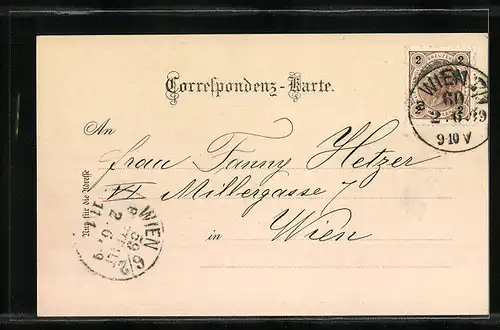 2 2
2 2
WIEN
60
9·10 V
Correspondenz-Karte.
An
Frau Fanny Hetzer
VI Millergasse 7
in Wien
Nur für die Adresse
WIEN 6/2